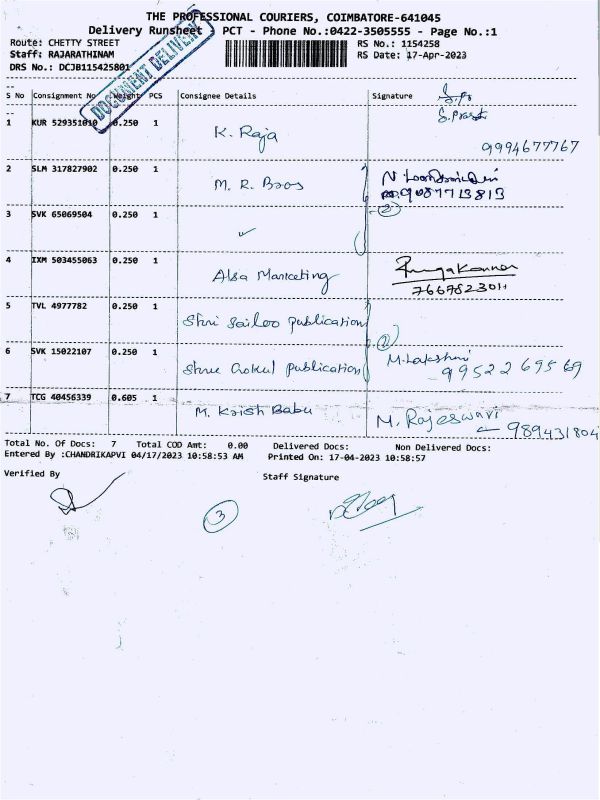 THE PROFESSIONAL COURIERS, COIMBATORE-641045
Delivery Runsheet PCT - Phone No.:0422-3505555 - Page No.:1
Route: CHETTY STREET RS No.: 1154258
Staff: RAJARATHINAM RS Date: 17-Apr-2023
DRS No.: DCJB115425801
DOCUMENT DELIVERY
S No Consignment No Weight PCS Consignee Details Signature
S.Prast
1 KUR 529351010 0.250 1 K. Raja 9994677767
2 SLM 317827902 0.250 1 M. R. Bros 9087713813
3 SVK 65069504 0.250 1 2
4 IXM 503455063 0.250 1 Alsa Marketing
7667823011
5 TVL 4977782 0.250 1 Shri Sailoo publication
6 SVK 15022107 0.250 1 Shree Gokul publication M.Lakshmi 9952269569
7 TCG 40456339 0.605 1 M. Krish Babu M. Rajeswari 989431804
Total No. Of Docs: 7 Total COD Amt: 0.00 Delivered Docs: Non Delivered Docs:
Entered By :CHANDRIKAPVI 04/17/2023 10:58:53 AM Printed On: 17-04-2023 10:58:57
Verified By Staff Signature
3